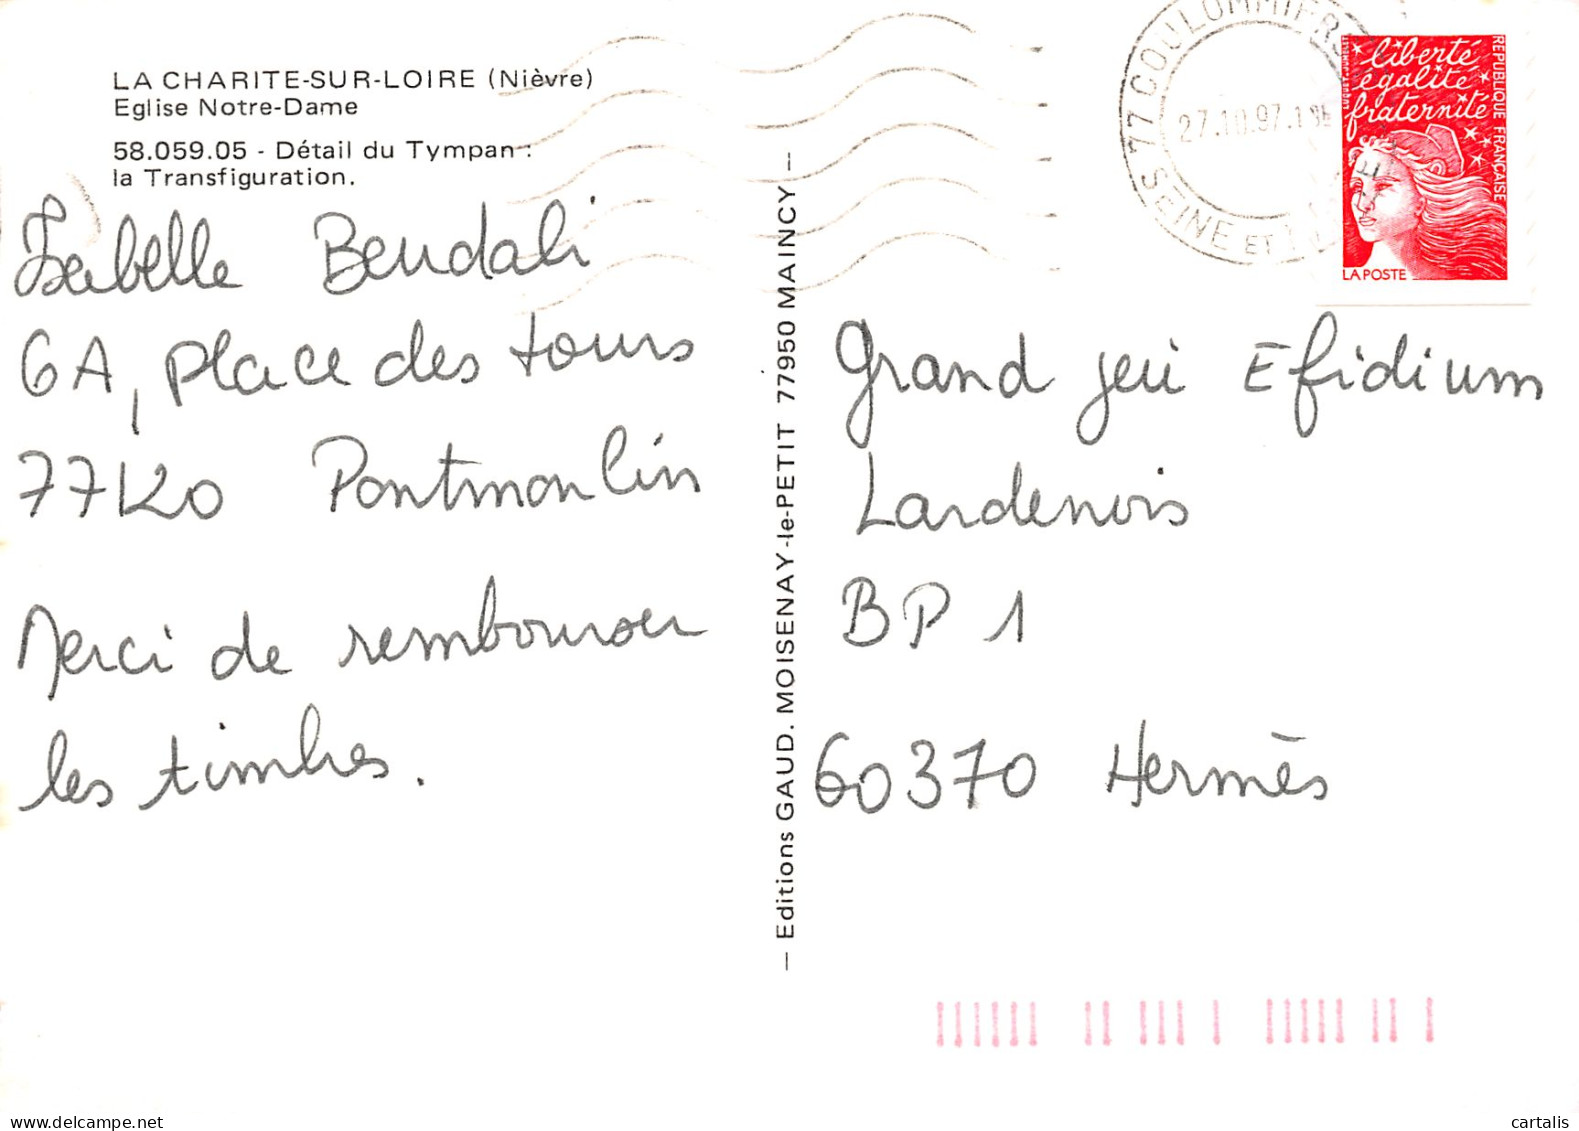 LA CHARITE-SUR-LOIRE (Nièvre)
Eglise Notre-Dame
58.059.05 - Détail du Tympan :
la Transfiguration.
Isabelle Bendali
6A, place des tours
77120 Pontmoulin
Merci de rembourser
les timbres.
— Editions GAUD. MOISENAY-le-PETIT 77950 MAINCY —
77 COULOMMIERS
27.10.97
SEINE ET
liberté
égalité
fraternité
REPUBLIQUE FRANÇAISE
LA POSTE
Grand jeu Efidium
Lardenois
BP 1
60370 Hermès
delcampe.net
cartalis